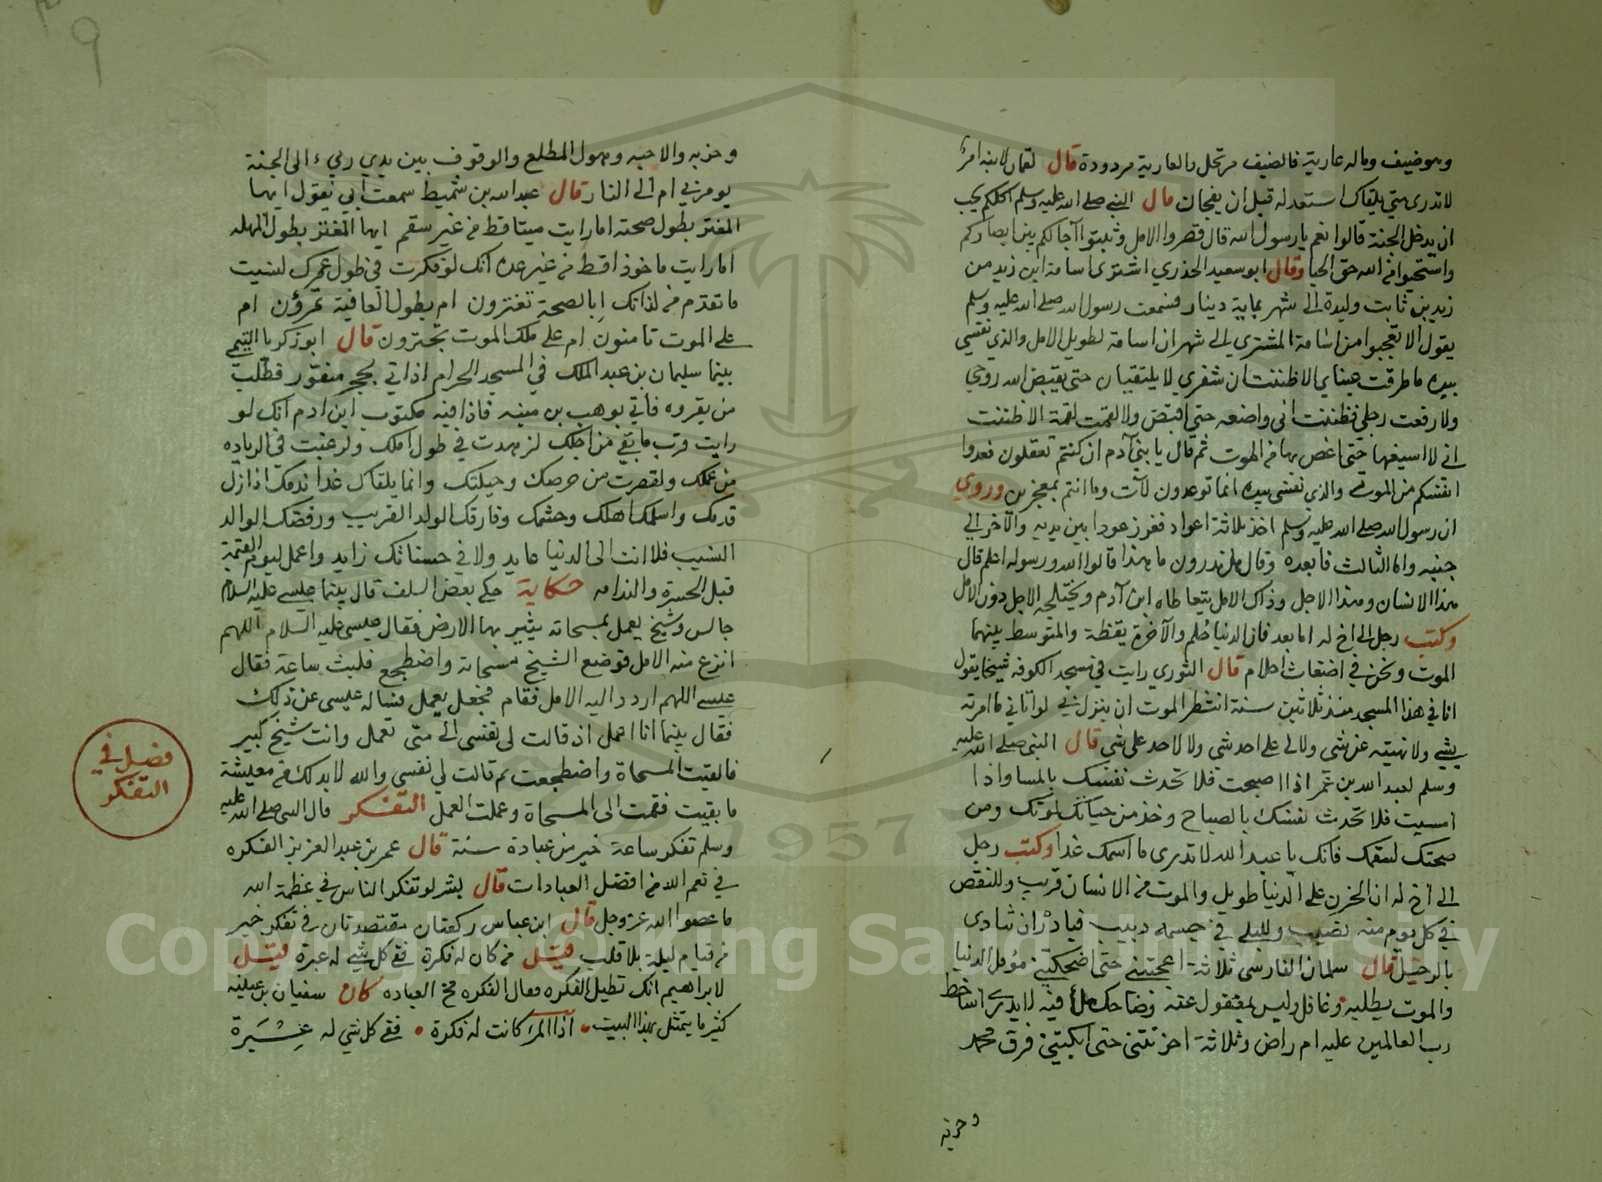 وهو ضيف وماله عارية فالضيف مرتحل والعارية مردودة قال لقمان لابنه امر
لا تدري متي يلقاك استعد له قبل ان يفجاك قال النبي صلي الله عليه وسلم اكلكم يحب
ان يدخل الجنة قالوا نعم يا رسول الله قال قصروا الامل وثبتوا آجالكم بين ابصاركم
واستحيوا من الله حق الحيا وقال ابو سعيد الخدري اشترى اسامة ابن زيد من
زيد بن ثابت وليدة الى شهر بماية دينار فسمعت رسول الله صلي الله عليه وسلم
يقول الا تعجبوا من اسامة المشتري الى شهر ان اسامة لطويل الامل والذي نفسي
بيده ما طرقت عيناي الا ظننت ان شفري لا يلتقيان حتي يقبض الله روحي
ولا رفعت رجلي فظننت اني واضعه حتي اقبض ولا لقمت لقمة الا ظننت
اني لا اسيغها حتي اغص بها من الموت ثم قال يا بني آدم ان كنتم تعقلون فعدوا
انفسكم من الموتي والذي نفسي بيده انما توعدون لآت وما انتم بمعجزين وروي
ان رسول الله صلي الله عليه وسلم اخذ ثلاثة اعواد فغرز عودا بين يديه والآخر الي
جنبه واما الثالث فابعده وقال هل تدرون ما هذا قالوا الله ورسوله اعلم قال
هذا الانسان وهذا الاجل وذاك الامل يتعاطاه ابن آدم ويختلجه الاجل دون الامل
وكتب رجل الى اخ له اما بعد فان الدنيا حلم والآخرة يقظة والمتوسط بينهما
الموت ونحن في اضغاث احلام قال الثوري رايت في مسجد الكوفة شيخا يقول
انا في هذا المسجد منذ ثلاثين سنة انتظر الموت ان ينزل بي لو اتاني ما امرته
بشي ولا نهيته عن شي ولا لي علي احد شي ولا لاحد علي شي قال النبي صلي الله عليه
وسلم لعبد الله بن عمر اذا اصبحت فلا تحدث نفسك بالمسا واذا
امسيت فلا تحدث نفسك بالصباح وخذ من حياتك لموتك ومن
صحتك لسقمك فانك يا عبد الله لا تدري ما اسمك غدا وكتب رجل
الى اخ له ان الحزن على الدنيا طويل والموت من الانسان قريب وللنقص
في كل يوم منه نصيب وللبلي في جسمه دبيب فبادر ان تنادى
بالرحيل قال سلمان الفارسي ثلاثة اعجبتني حتي اضحكتني مؤمل الدنيا
والموت يطلبه وغافل وليس بمغفول عنه وضاحك ملأ فيه لا يدري اساخط
رب العالمين عليه ام راض وثلاثة احزنتني حتي ابكتني فرق محمد
وحزبه
وحزبه والاحبه وهول المطلع والوقوف بين يدي ربي الى الجنة
يومر بي ام الى النار قال عبد الله بن شميط سمعت ابي يقول ايها
المغتر بطول صحته اما رايت ميتا قط من غير سقم ايها المغتر بطول المهله
اما رايت ماخوذا قط من غير عده انك لو فكرت في طول عمرك لنسيت
ما تقدم من لذاتك ابالصحة تغترون ام بطول العافية تمرؤن ام
على الموت تامنون ام على ملك الموت تجترون قال ابو زكريا التيمي
بينما سليمان بن عبد الملك في المسجد الحرام اذ اتي بحجر منقور فطلب
من يقروه فاتي بوهب بن منبه فاذا فيه مكتوب ابن ادم انك لو
رايت قرب ما بقي من اجلك لزهدت في طول املك ولرغبت في الزياده
من عملك ولقصرت من حرصك وحيلتك وانما يلقاك غدا ندمك اذا زل
قدمك واسلمك اهلك وحشمك وفارقك الولد القريب ورفضك الوالد
النسيب فلا انت الى الدنيا عايد ولا في حسناتك زايد واعمل ليوم القيمة
قبل الحسرة والندامه حكاية حكي بعض السلف قال بينما عيسي عليه السلام
جالس وشيخ يعمل بمسحاته يثير بها الارض فقال عيسي عليه السلام اللهم
انزع منه الامل فوضع الشيخ مسحاته واضطجع فلبث ساعة فقال
عيسي اللهم اردد اليه الامل فقام فجعل يعمل فساله عيسى عن ذلك
فقال بينما انا اعمل اذ قالت لى نفسى الى متى تعمل وانت شيخ كبير
فالقيت المسحاة واضطجعت ثم قالت لي نفسي والله لا بد لك من معيشة
ما بقيت فقمت الى المسحاة وعملت العمل التفكر قال النبي صلى الله عليه
فصل في
التفكر
وسلم تفكر ساعة خير من عبادة سنة قال عمر بن عبد العزيز الفكره
في نعم الله من افضل العبادات قال بشر لو تفكر الناس في عظمة الله
ما عصوا الله عز وجل قال ابن عباس ركعتان مقتصدتان في تفكر خير
من قيام ليلة بلا قلب قيل من كان له فكرة ففي كل شي له عبرة قيل
لابراهيم انك تطيل الفكره فقال الفكره مخ العباده كان سفيان بن عيينه
كثيرا ما يتمثل بهذا البيت • اذا المرء كانت له فكرة • ففي كل شي له عبرة
Copyright © King Saud University
1957